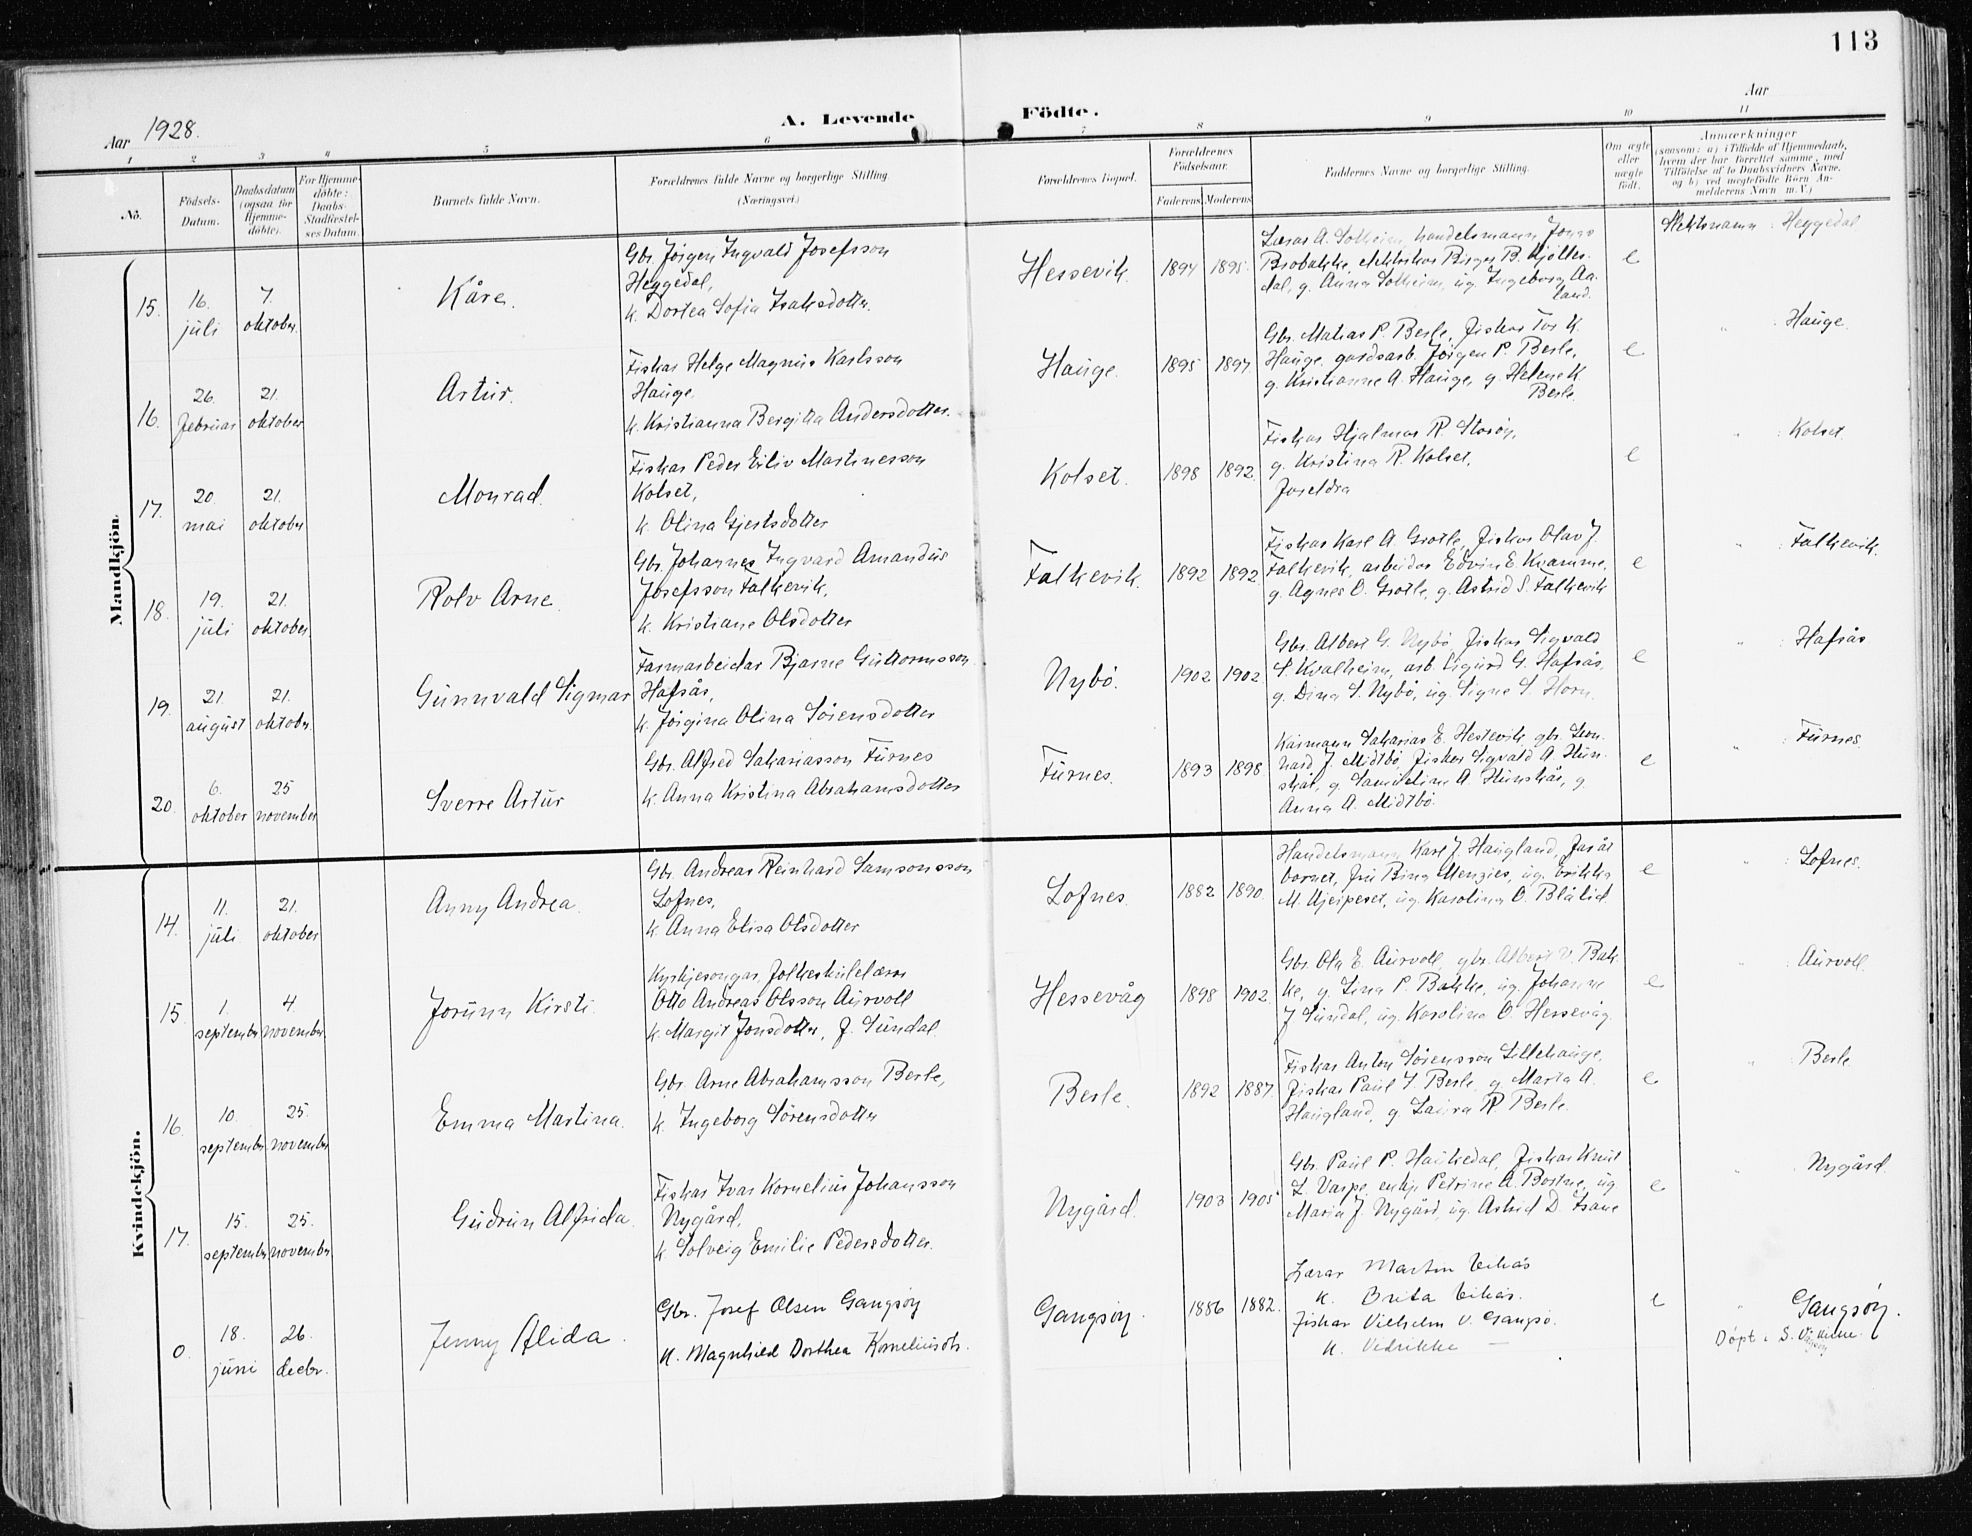 113
Aar 1928.
A. Levende Födte.
Aar
1 2 3 4 5 6 7 8 9 10 11
No.
Födsels-
Datum.
Daabsdatum
(ogsaa for
Hjemme-
döbte).
For Hjemme-
döbte:
Daabs-
Stadfæstel-
ses Datum.
Barnets fulde Navn.
Forældrenes fulde Navne og borgerlige Stilling.
(Næringsvei.)
Forældrenes Bopæl.
Forældrenes
Födselsaar.
Faderens Moderens
Faddernes Navne og borgerlige Stilling.
Om ægte
eller
uægte
födt.
Anmærkninger
(saasom: a) i Tilfælde af Hjemmedaab,
hvem der har forrettet samme, med
Tilföielse af to Daabsvidners Navne.
og b) ved uægtefödte Börn An-
melderens Navn m. V.)
Mandkjön.
15. 16. juli
7. oktober.
Kåre.
Gbr. Jörgen Ingvald Josefsson
Heggedal,
k. Dortea Sofia Isaksdotter.
Hessevik.
1894 1895.
Lærar A. Solheim, handelsmann Jonas
Brobakke, elektrikar Birger B. Hjölle-
dal, g. Anna Solheim, ug. Ingeborg Aa-
land.
e
Slektsnamn: Heggedal
16. 26. februar
21. oktober
Artur.
Fiskar Helge Magnus Karlsson
Hauge,
k. Kristianna Bergitta Andersdotter.
Hauge.
1895 1897.
Gbr. Matias P. Berle, fiskar Tor K.
Hauge, gardsarb. Jörgen P. Berle,
g. Kristianne A. Hauge, g. Helene K.
Berle.
e
" : Hauge.
17. 20 mai
21. oktober
Monrad.
Fiskar Peder Eiliv Martinesson
Kolset,
k. Olina Gjertsdotter
Kolset.
1898 1892.
Fiskar Hjalmar R. Storöy,
g. Kristina R. Kolset,
foreldra
e
" : Kolset.
18. 19. juli
21. oktober.
Rolv Arne.
Gbr. Johannes Ingvard Amandus
Josefsson Falkevik,
k. Kristiane Olsdotter
Falkevik.
1892 1892
Fiskar Karl A. Grotle, fiskar Olav J.
Falkevik, arbeidar Edvin E. Kvamme,
g. Agnes O. Grotle, g. Astrid S. Falkevik
e
" : Falkevik.
19. 21. august
21. oktober.
Gunnvald Sigmar
Farmarbeidar Bjarne Guttormsson
Hafsås,
k. Jörgina Olina Sörensdotter
Nybö.
1902 1902
Gbr. Albert G. Nybö, fiskar Sigvald
S. Kvalheim, arb. Sigurd G. Hafsås,
g. Dina S. Nybö, ug. Signe S. Horn.
e
" : Hafsås
20. 6. oktober
25 november
Sverre Artur
Gbr. Alfred Sakariasson Furnes
k. Anna Kristina Abrahamsdotter
Furnes.
1893 1898
Kårmann Sakarias E. Hestevik, gbr. Leon-
hard J. Midtbö, fiskar Sigvald A. Hun-
skår, g. A. Hunskår, g.
Anna A. Midtbö.
e
" : Furnes.
Kvindekjön.
14. 11. juli
21. oktober
Anny Andrea.
Gbr. Andreas Reinhard Samsonsson
Lofnes,
k. Anna Elisa Olsdotter
Lofnes.
1882 1890.
Handelsmann Karl J. Haugland, far åt
barnet, fru Rina Menzies, ug. Erikka
M. Myeipeset, ug. Karolina O. Blålid.
e
" : Lofnes.
15. 1. september
4. november.
Jorunn Kirsti.
Kyrkjesongar, folkeskulelærar
Otto Andreas Olsson Aurvoll
k. Margit Jonsdotter, f. Sundal.
Hessevåg
1898 1902.
Gbr. Ola E. Aurvoll, gbr. Albert V. Bak-
ke, g. Lina P. Bakke, ug. Johanne
J Sundal, ug. Karolina O. Hessevåg.
e
" : Aurvoll.
16. 10. september
25. november
Emma Martina.
Gbr. Arne Abrahamsson Berle,
k. Ingeborg Sörensdotter
Berle.
1892 1887.
Fiskar Anton Sörensson Lillehauge,
fiskar Paul J. Berle, g. Marta A.
Haugland, g. Laura R. Berle.
e
" : Berle.
17. 15. september
25. november.
Gudrun Alfrida.
Fiskar Ivar Kornelius Johansson
Nygård,
k. Solveig Emilie Pedersdotter.
Nygård.
1903 1905
Gbr. Paul P. Haukedal, fiskar Knut
L. Varpe, enkje Petrine A. Bortne, ug.
Maria J. Nygård, ug. Astrid D. Trane
e
" Nygård.
0. 18. juni
26. decbr.
Jenny Alida.
Gbr. Josef Olsen Gangsöy
k. Magnhild Dorthea Korneliusdtr.
Gangsöy.
1886 1882.
Lærar Martin Vikås
k. Brita Vikås.
fiskar Vilhelm V. Gangsö.
k. Vedrikke —
e
" Gangsöy.
Döpt i S.